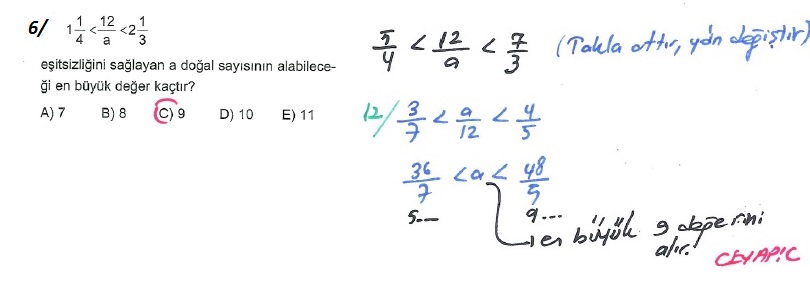 6/ 1 1/4 < 12/a < 2 1/3
eşitsizliğini sağlayan a doğal sayısının alabilece-
ği en büyük değer kaçtır?
A) 7 B) 8 C) 9 D) 10 E) 11
5/4 < 12/a < 7/3 (Takla attır, yön değiştir)
12/ 3/7 < a/12 < 4/5
36/7 < a < 48/5
5... 9...
en büyük 9 değerini
alır.
CEVAP:C